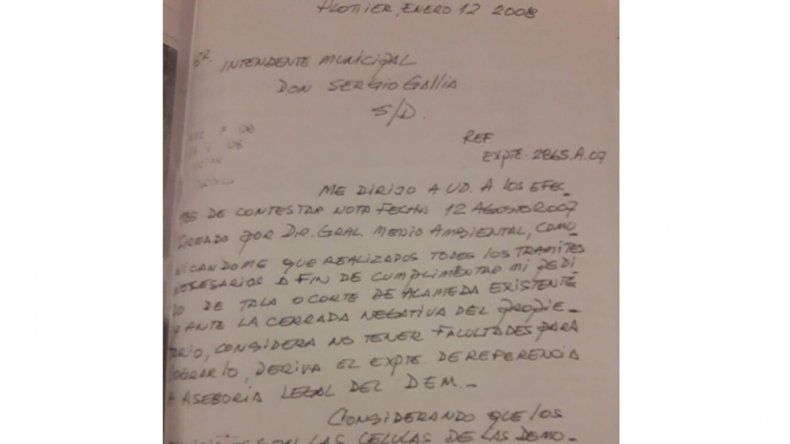 PLOTTIER, ENERO 12 2008
SR. INTENDENTE MUNICIPAL
DON SERGIO GALLIA
S/D.
REF
EXPTE. 2865.A.07
ME DIRIJO A UD. A LOS EFEC-
TOS DE CONTESTAR NOTA FECHA 12 AGOSTO 2007
CREADO POR DIR. GRAL MEDIO AMBIENTAL, COMU
NICANDOME QUE REALIZADOS TODOS LOS TRAMITES
NECESARIOS A FIN DE CUMPLIMENTAR MI PEDI
DO DE TALA O CORTE DE ALAMEDA EXISTENTE
Y ANTE LA CERRADA NEGATIVA DEL PROPIE-
TARIO, CONSIDERA NO TENER FACULTADES PARA
LOGRARLO, DERIVA EL EXPTE. DE REFERENCIA
A ASESORIA LEGAL DEL DEM.-
CONSIDERANDO QUE LOS
SON LAS CELULAS DE LAS DEMO-